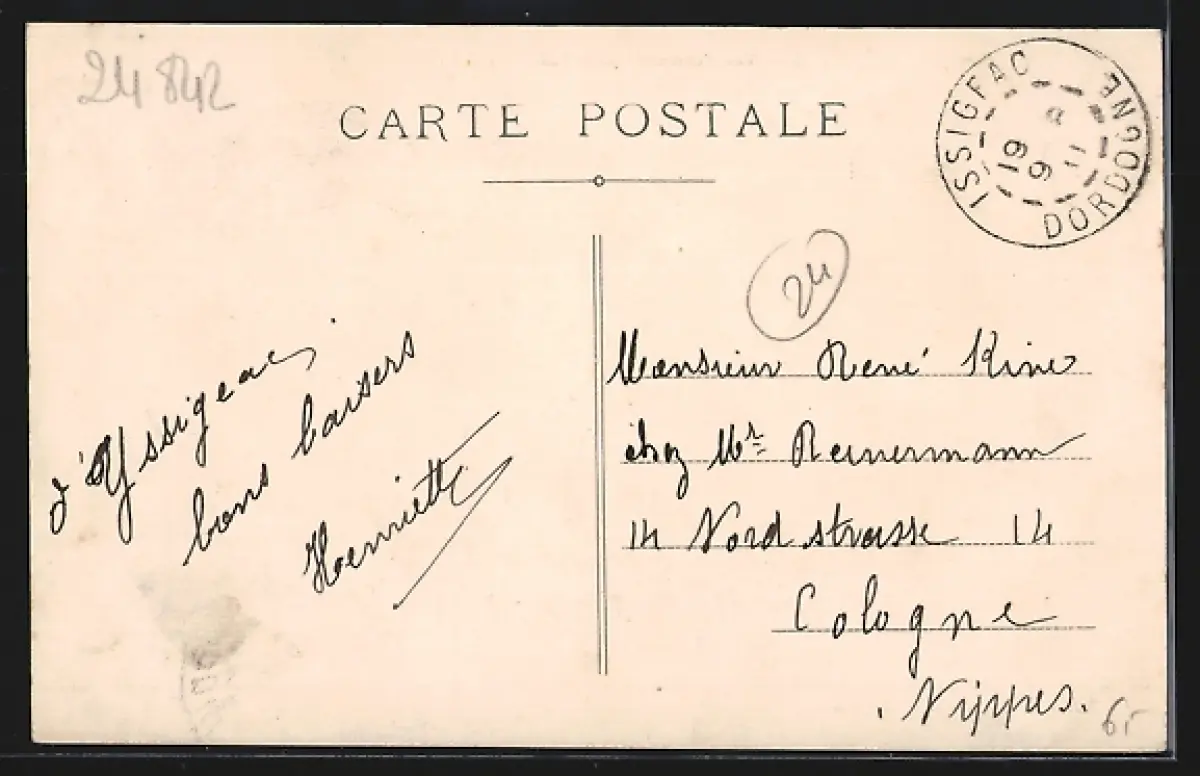 24 842
CARTE POSTALE
ISSIGEAC DORDOGNE
19 9 11
24
d'Yssigeac
bons baisers
Henriette
Monsieur René Kine
chez Mr Reinermann
14 Nord strasse 14
Cologne
. Nippes.
6